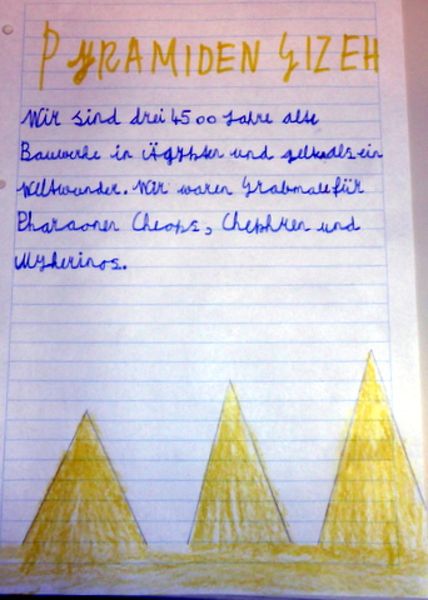 PYRAMIDEN GIZEH
Wir sind drei 4500 Jahre alte
Bauwerke in Ägypten und gelten als ein
Weltwunder. Wir waren Grabmale für
Pharaonen Cheops, Chephren und
Mykerinos.